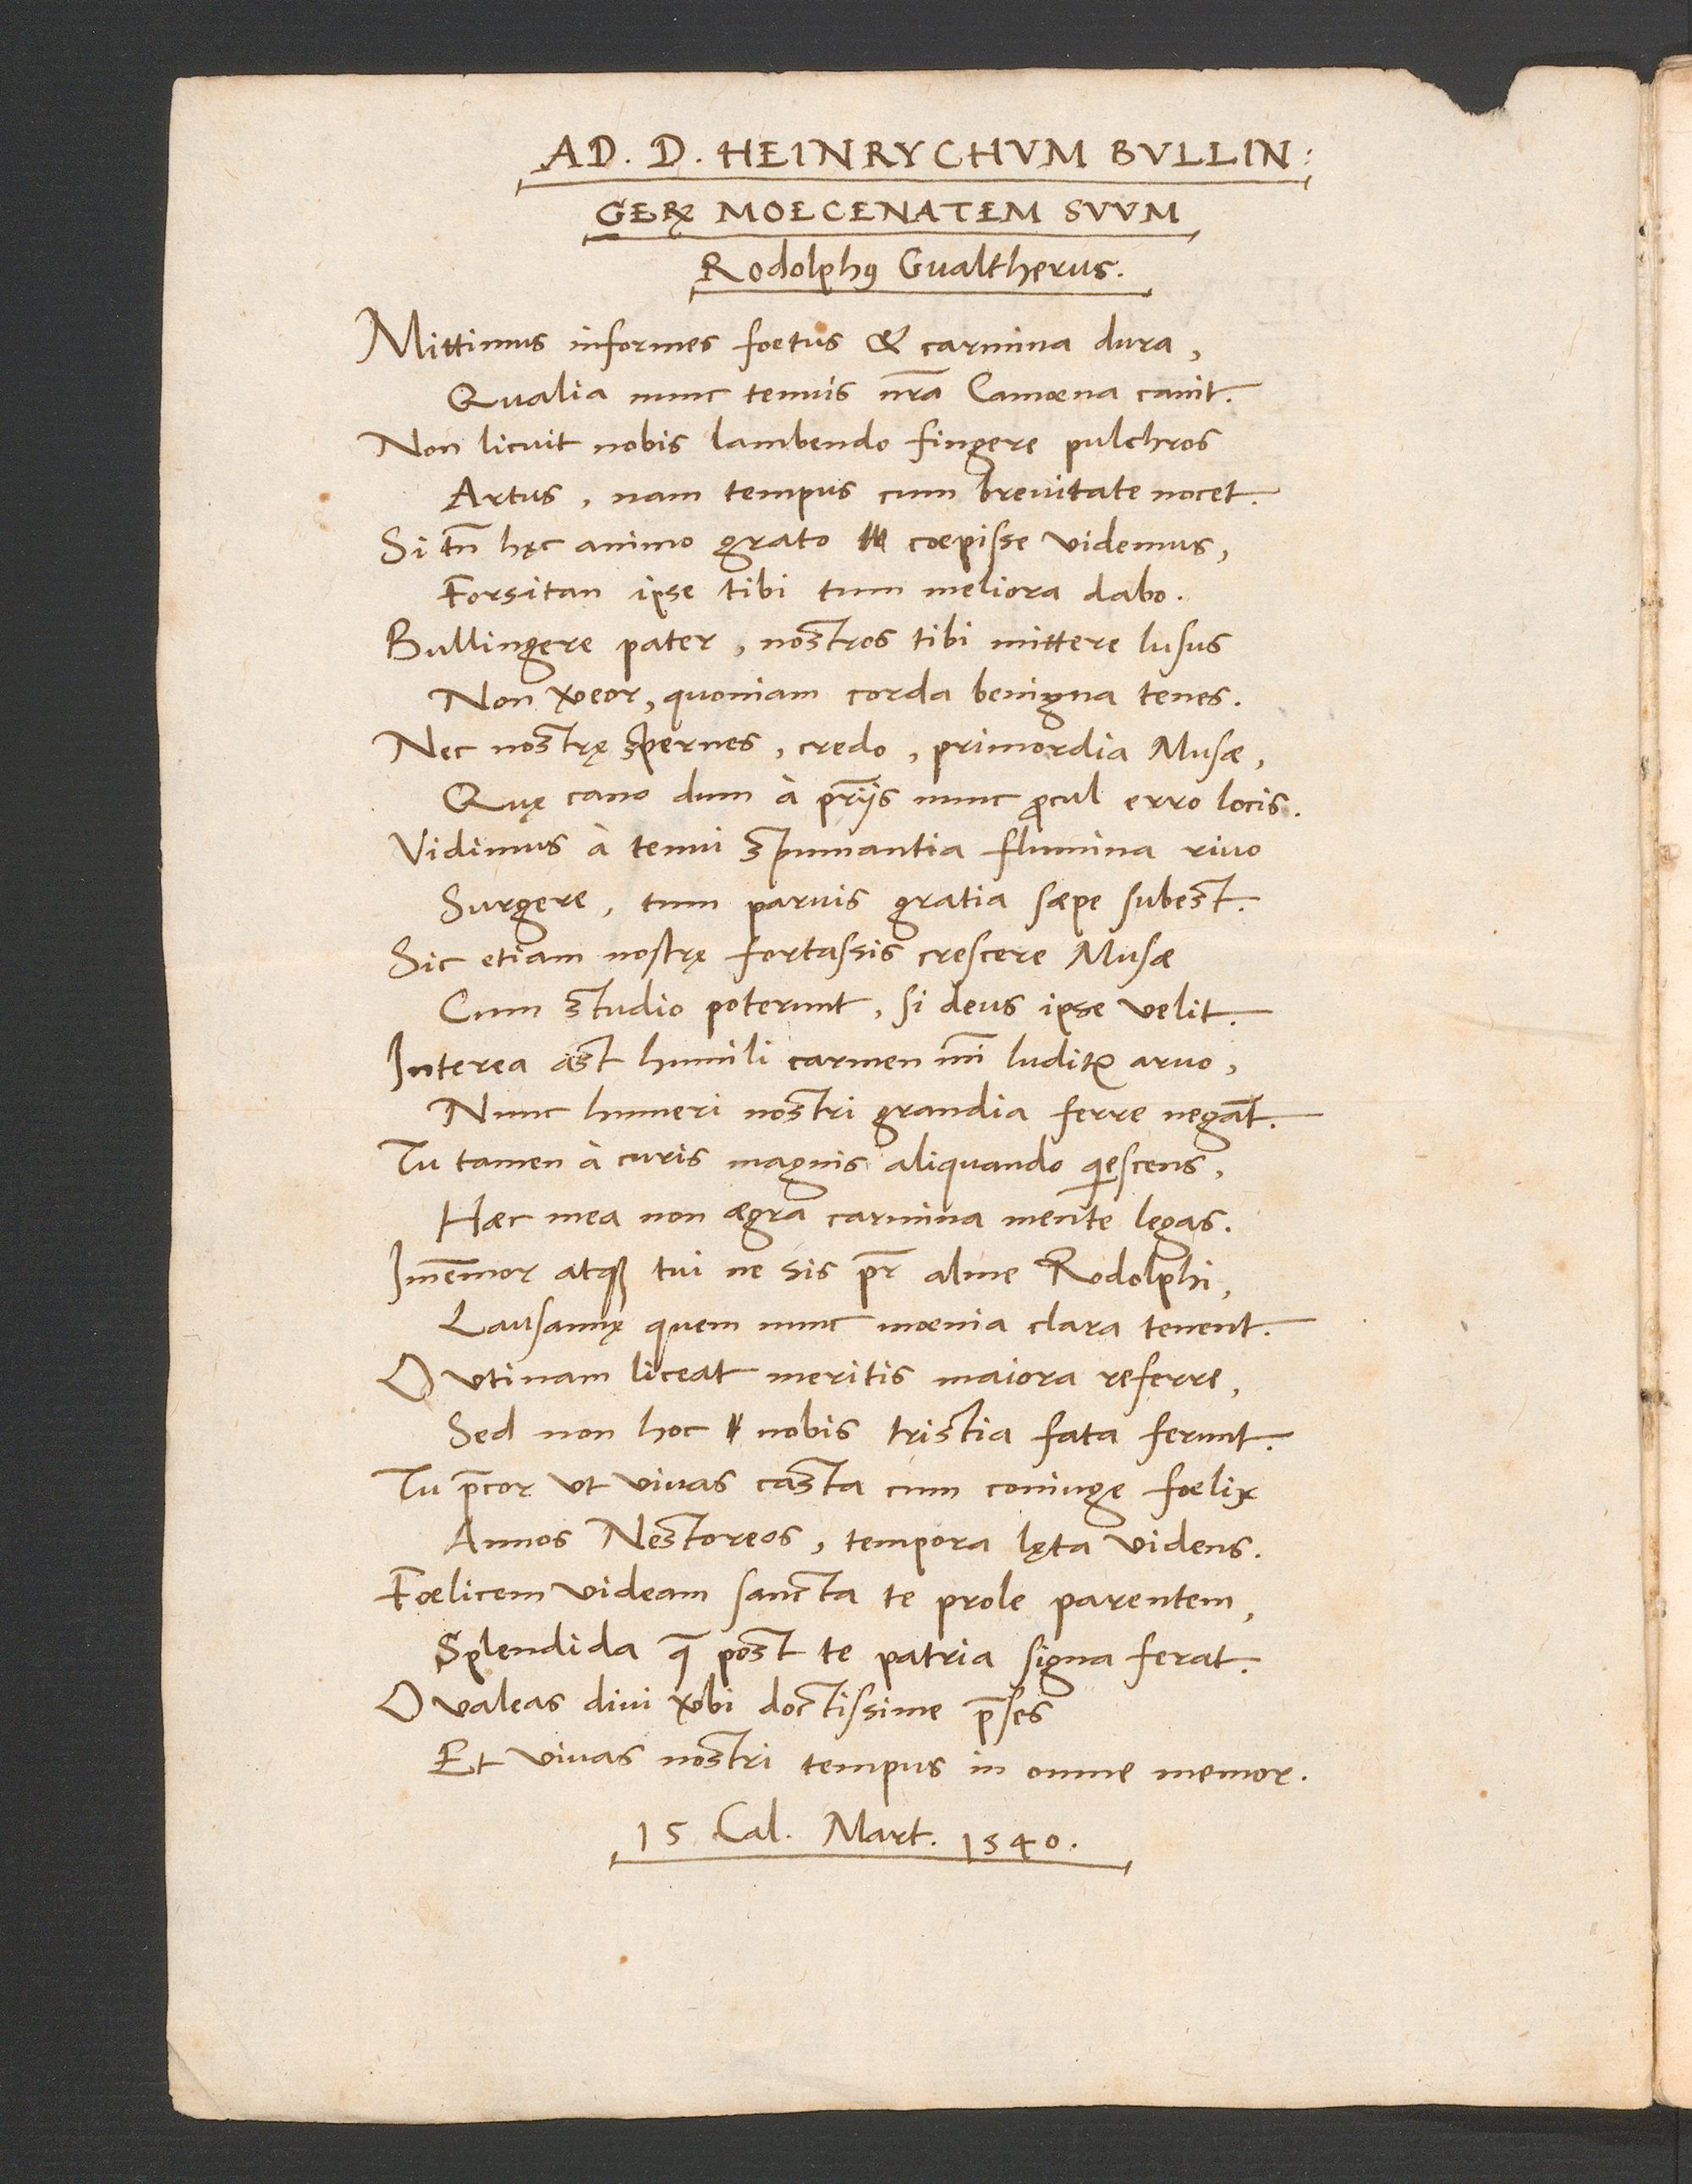 AD. D. HEINRYCHVM BVLLIN:
GERꝝ MOECENATEM SVVM
Rodolphꝰ Gualtherus.
Mittimus informes foetus & carmina dura,
Qualia nunc tenuis nr̃a Camœna canit.
Non licuit nobis lambendo fingere pulchros
Artus, nam tempus cum breuitate nocet.
Si tñ hęc animo grato cœpisse videmus,
Forsitan ipse tibi tum meliora dabo.
Bullingere pater, nostros tibi mittere lusus
Non v̓eor, quoniam corda benigna tenes.
Nec nostrę spernes, credo, primordia Musæ,
Quę cano dum à pr̃ijs nunc ꝓcul erro locis.
Vidimus à tenui spumantia flumina riuo
Surgere, tum paruis gratia sæpe subest.
Sic etiam nostrę fortassis crescere Musæ
Cum studio poterunt, si deus ipse velit.
Interea ast humili carmen mĩ luditꝛ aruo,
Nunc humeri nostri grandia ferre negãt.
Tu tamen à curis magnis aliquando q̇escens,
Hæc mea non ægra carmina mente legas.
Im̃emor atqꝫ tui ne sis pr̃ alme Rodolphi,
Lausannę quem nunc mœnia clara tenent.
O vtinam liceat meritis maiora referre,
Sed non hoc nobis tristia fata ferunt.
Tu p̃cor vt viuas casta cum coniuge fœlix
Annos Nestoreos, tempora lęta videns.
Fœlicem videam sancta te prole parentem,
Splendida q̃ post te patria signa ferat.
O valeas diui v̓bi doctissime p̃ses
Et viuas nostri tempus in omne memor.
15 Cal. Mart. 1540.